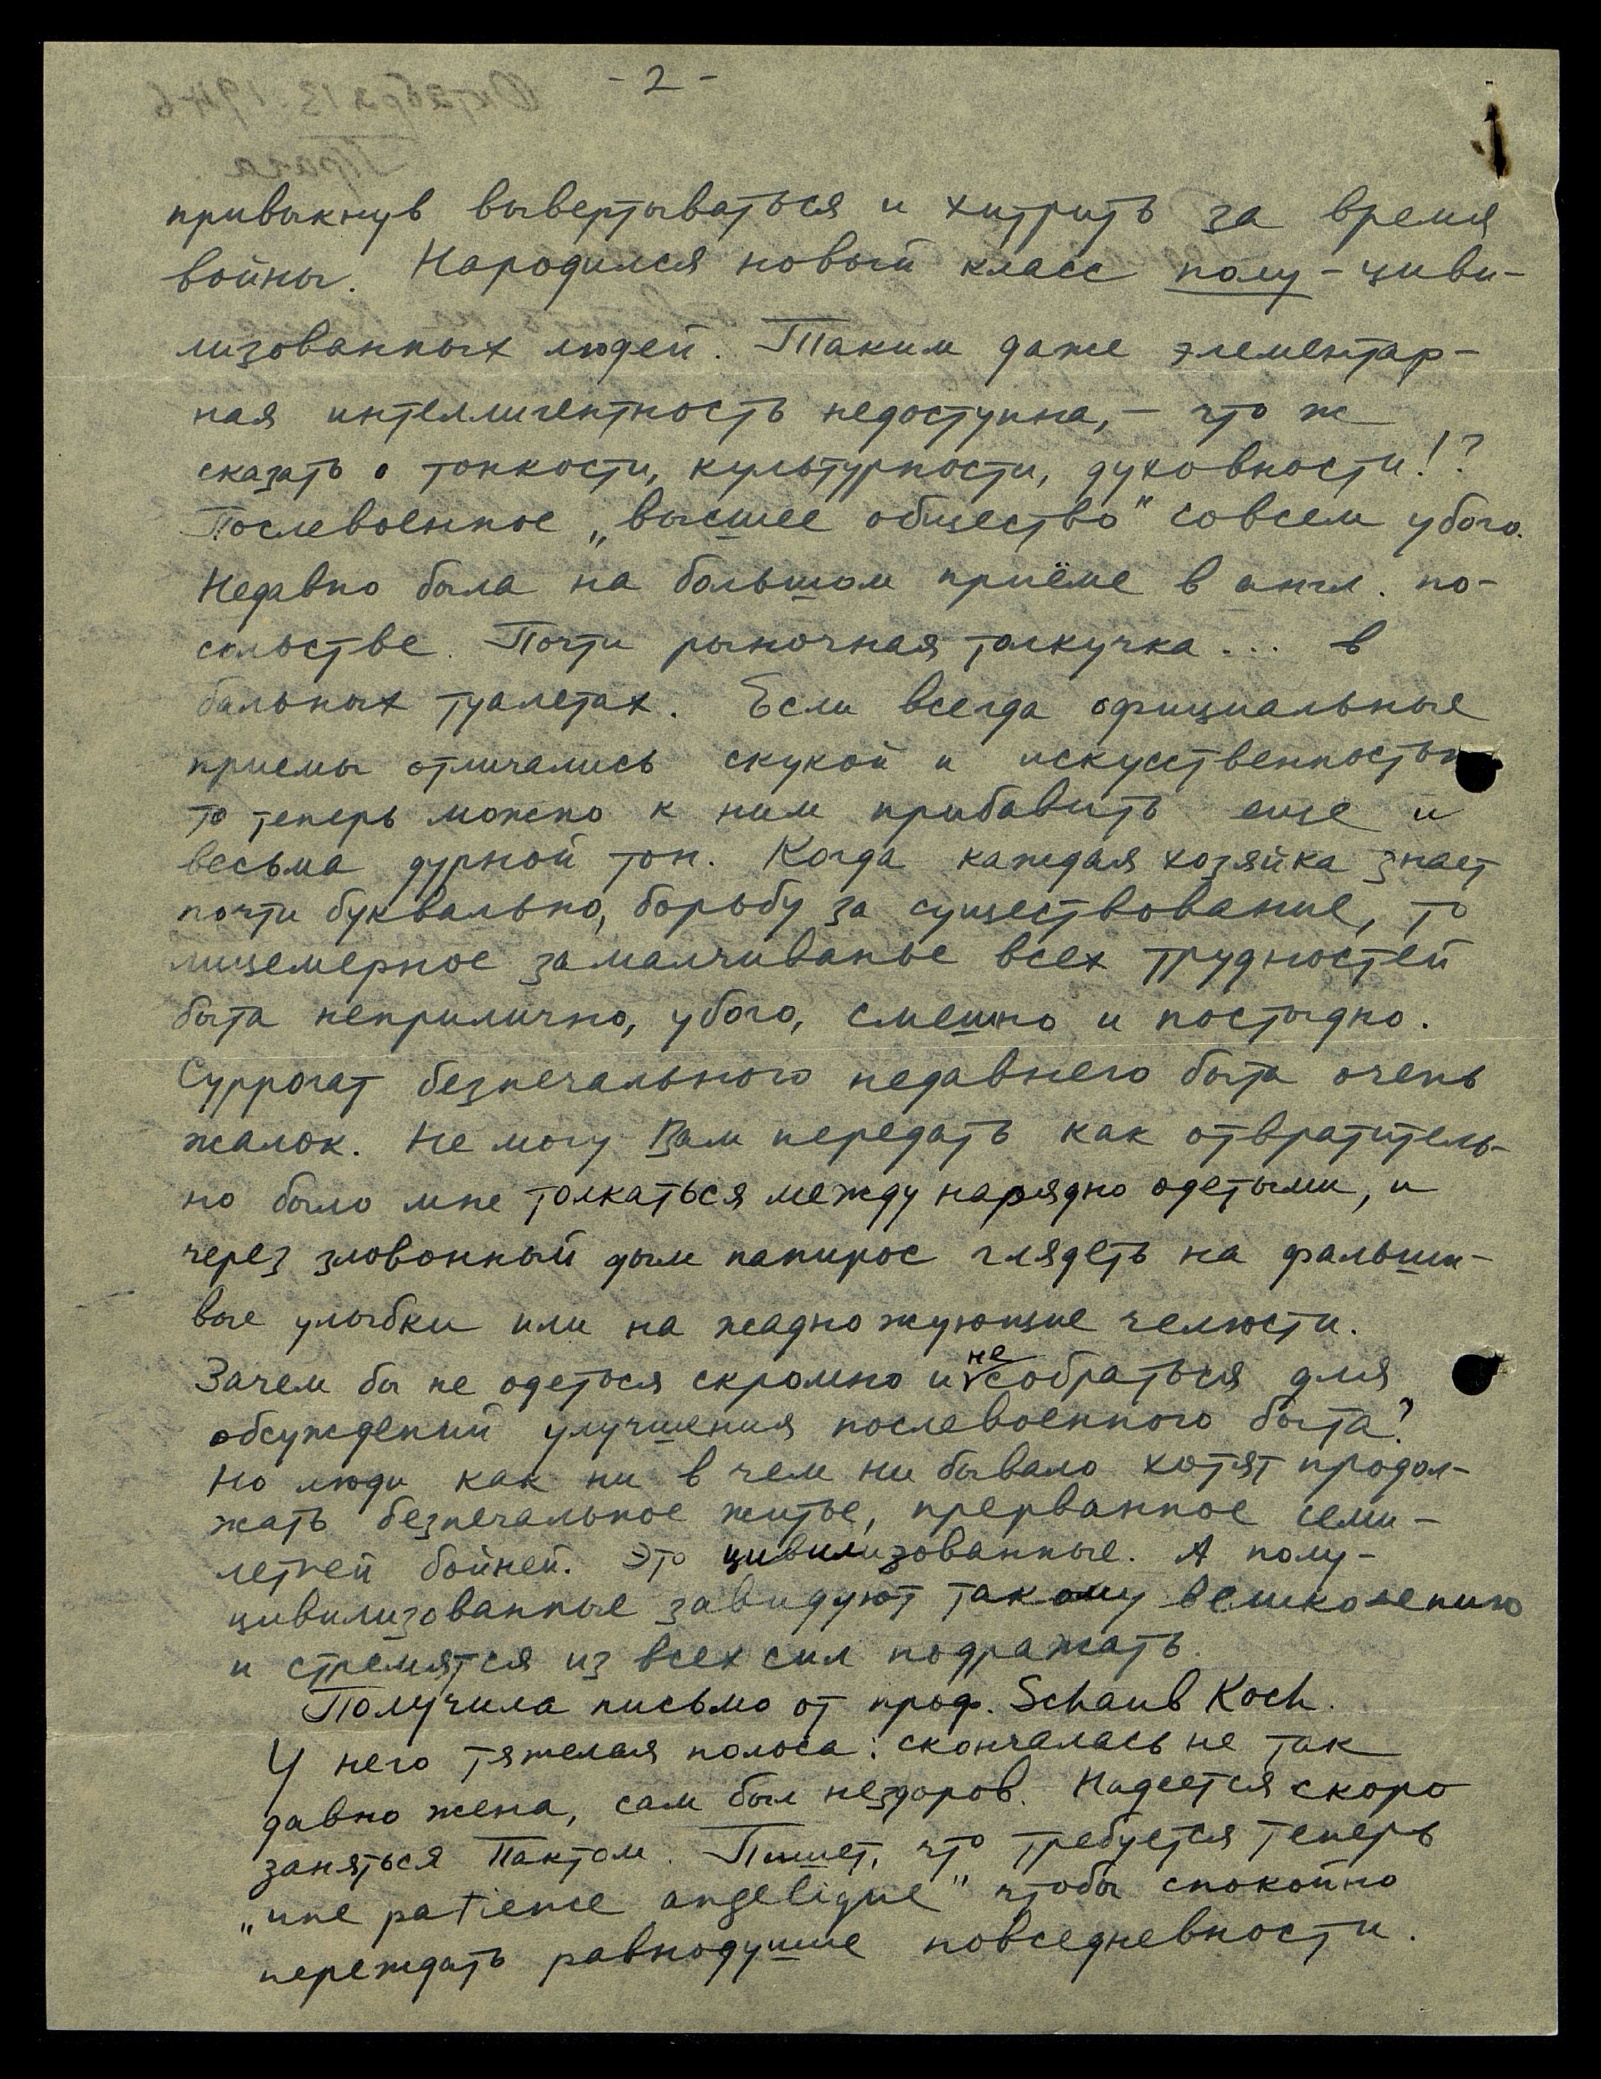 - 2 -
привыкнув вывертываться и хитрить за время
войны. Народился новый класс полу - циви-
лизованных людей. Таким даже элементар-
ная интеллигентность недоступна, — что ж
сказать о тонкости, культурности, духовности!?
Послевоенное „высшее общество" совсем убого.
Недавно была на большом приёме в англ. по-
сольстве. Почти рыночная толкучка ... в
бальных туалетах. Если всегда официальные
приемы отличались скукой и искусственностью
то теперь можно к ним прибавить еще и
весьма дурной тон. Когда каждая хозяйка знает
почти буквально, борьбу за существование, то
лицемерное замалчиванье всех трудностей
быта неприлично, убого, смешно и постыдно.
Суррогат безпечального недавнего быта очень
жалок. Не могу Вам передать как отвратитель-
но было мне толкаться между нарядно одетыми, и
через зловонный дым папирос глядеть на фальши-
вые улыбки или на жадно жующие челюсти.
Зачем бы не одеться скромно и не собраться для
обсуждений улучшения послевоенного быта?
Но люди как ни в чем ни бывало хотят продол-
жать безпечальное житье, прерванное семи-
летней бойней. Это цивилизованные. А полу-
цивилизованные завидуют такому великолепию
и стремятся из всех сил подражать.
Получила письмо от проф. Schaub Koch.
У него тяжелая полоса: скончалась не так
давно жена, сам был нездоров. Надеется скоро
заняться Пактом. Пишет, что требуется теперь
„une patience angelique" чтобы спокойно
переждать равнодушие повседневности.